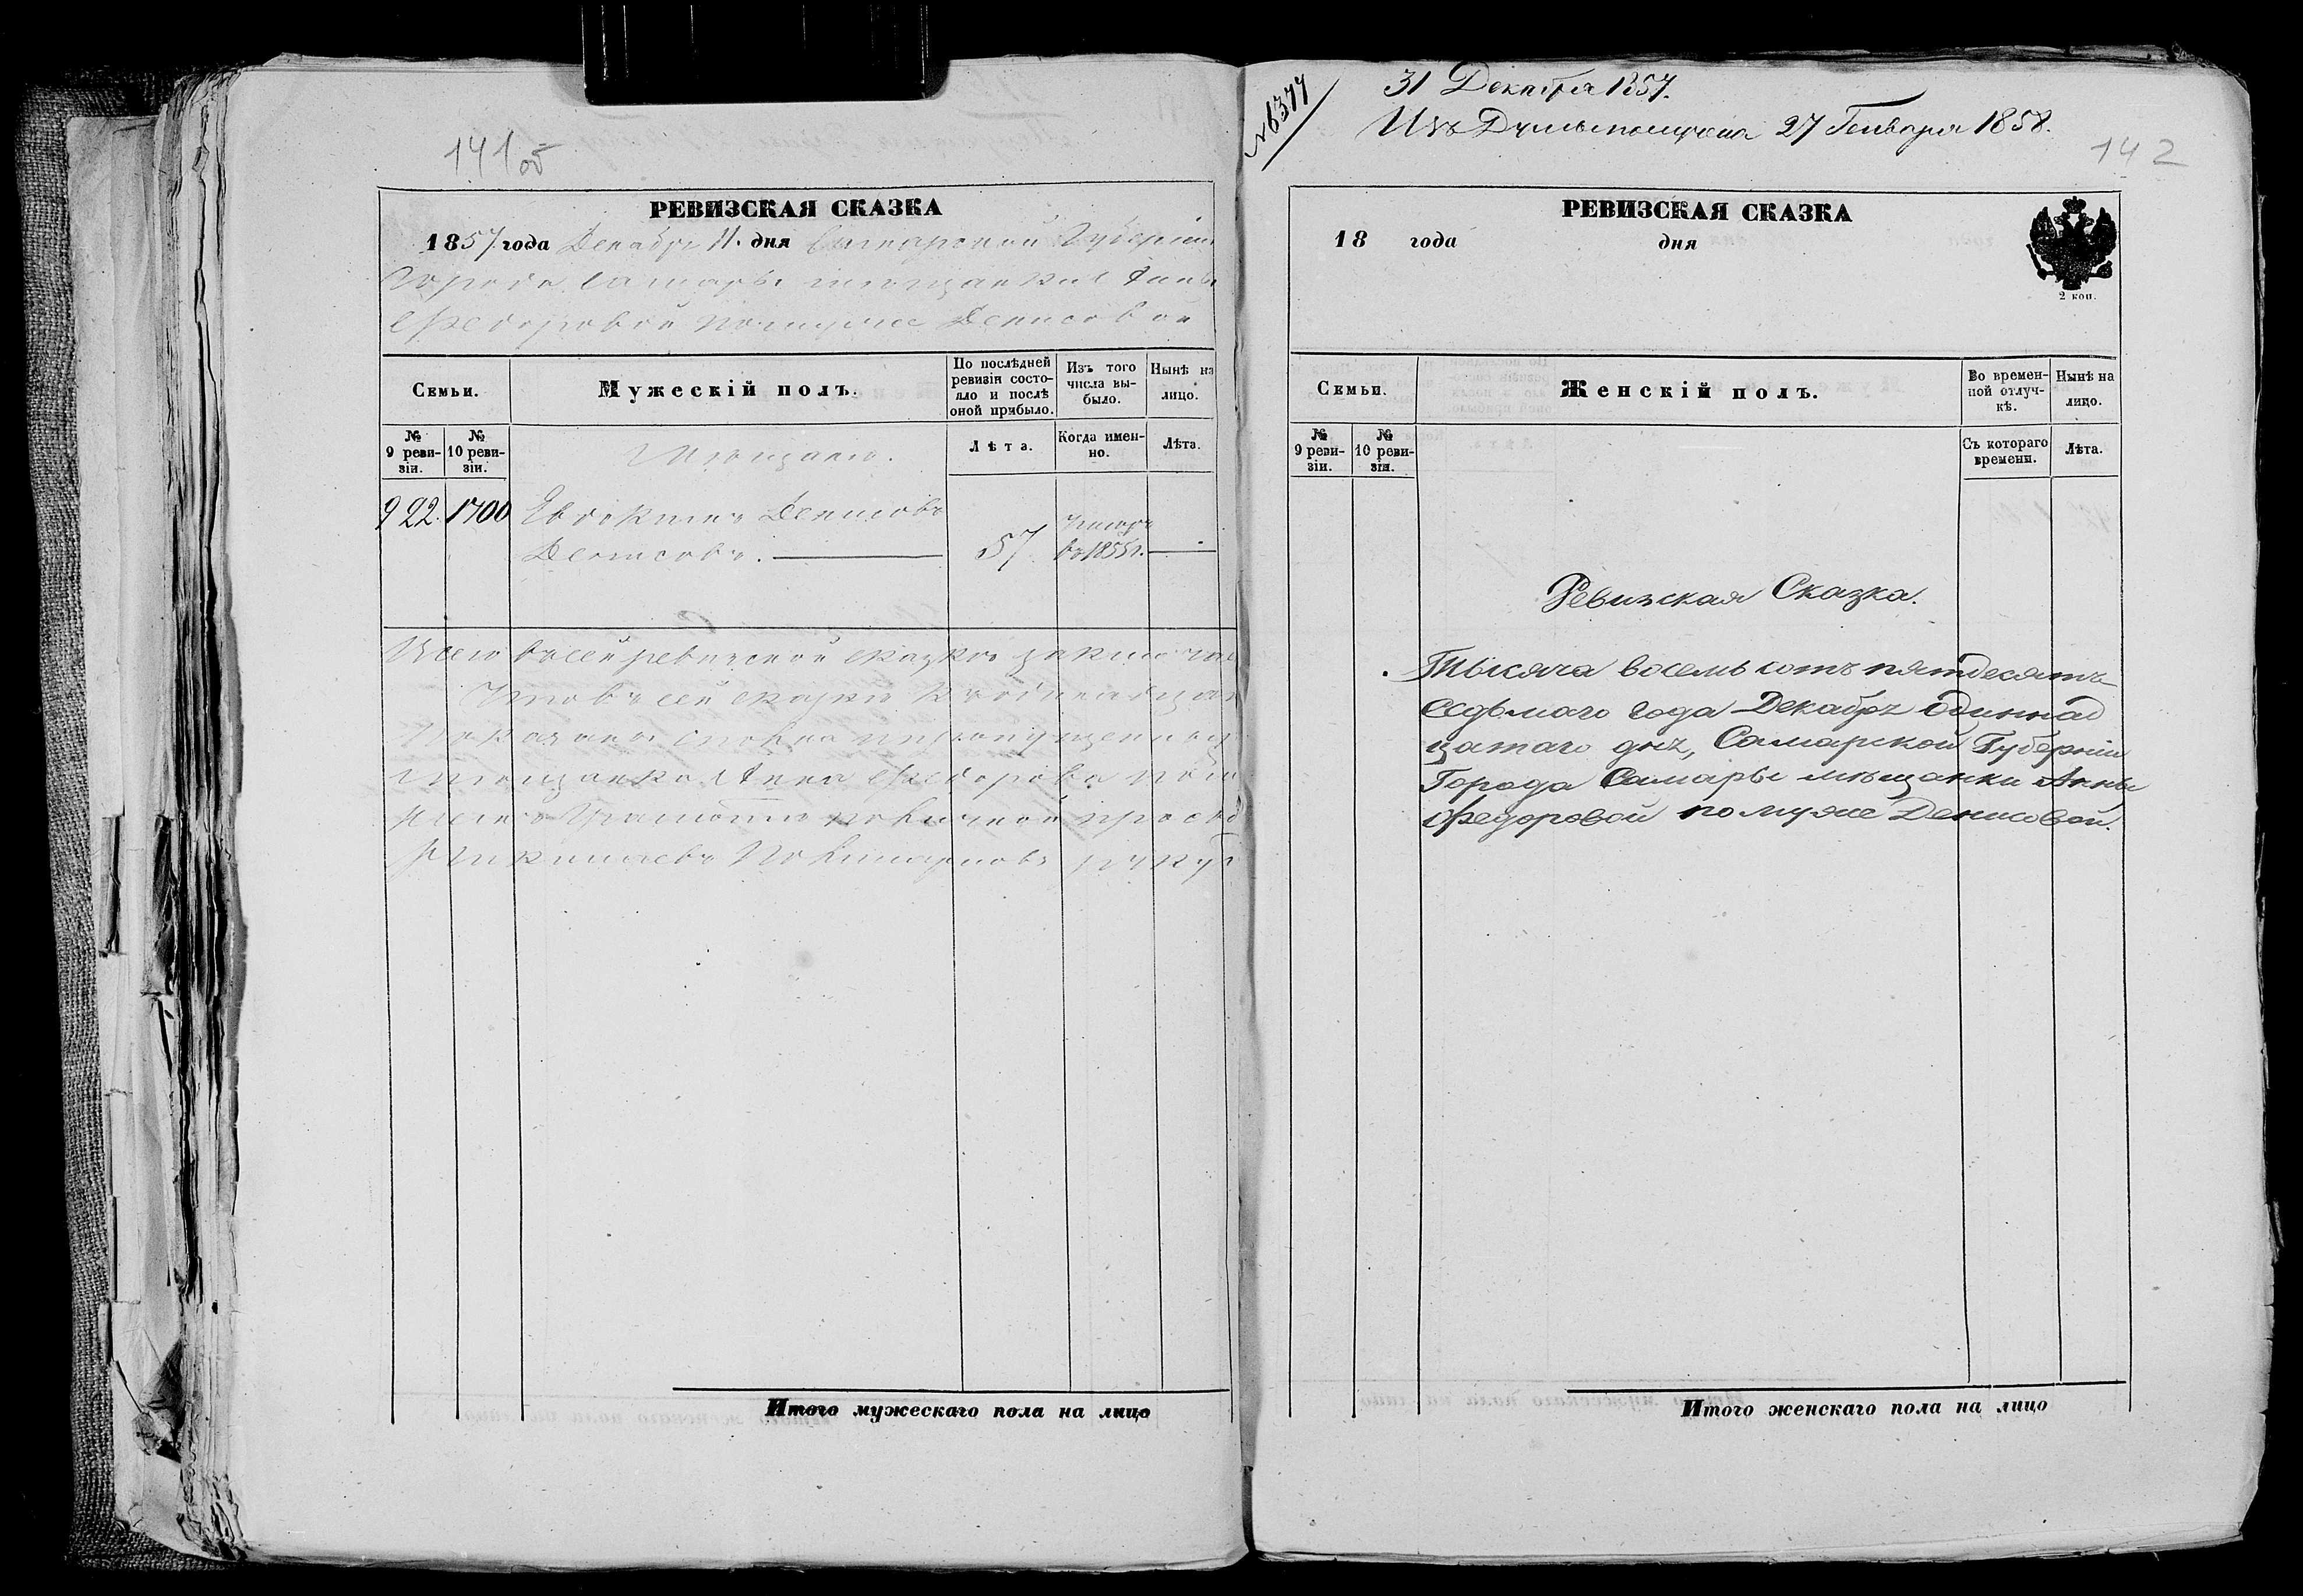 141 об
РЕВИЗСКАЯ СКАЗКА
1857 года Декабря 11 дня Самарской Губерніи
Города Самары мѣщанки Анны
Федоровой по мужѣ Денисовой
Семьи.
Мужескій полъ.
По послѣдней ревизіи состояло и послѣ оной прибыло.
Изъ того числа выбыло.
Нынѣ на лицо.
№ 9 ревизіи.
№ 10 ревизіи.
Мѣщане.
Лѣта.
Когда именно.
Лѣта.
922. 1700 Евдокимъ Денисовъ
Денисовъ. 57 въ 1855 г.
Всего въ сей ревизской сказкѣ
Что въ сей сказкѣ
мѣщанка Анна Федорова
Итого мужескаго пола на лицо
№ 6377
31 Декабря 1857.
27 Генваря 1858.
142
РЕВИЗСКАЯ СКАЗКА
18 года дня
2 коп.
Семьи.
Женскій полъ.
Во временной отлучкѣ.
Нынѣ на лицо.
№ 9 ревизіи.
№ 10 ревизіи.
Съ котораго времени.
Лѣта.
Ревизская Сказка.
Тысяча восемь сотъ пятдесятъ
седьмаго года Декабря одиннад
цатаго дня, Самарской Губерніи
Города Самары мѣщанки Анны
Федоровой по мужѣ Денисовой.
Итого женскаго пола на лицо